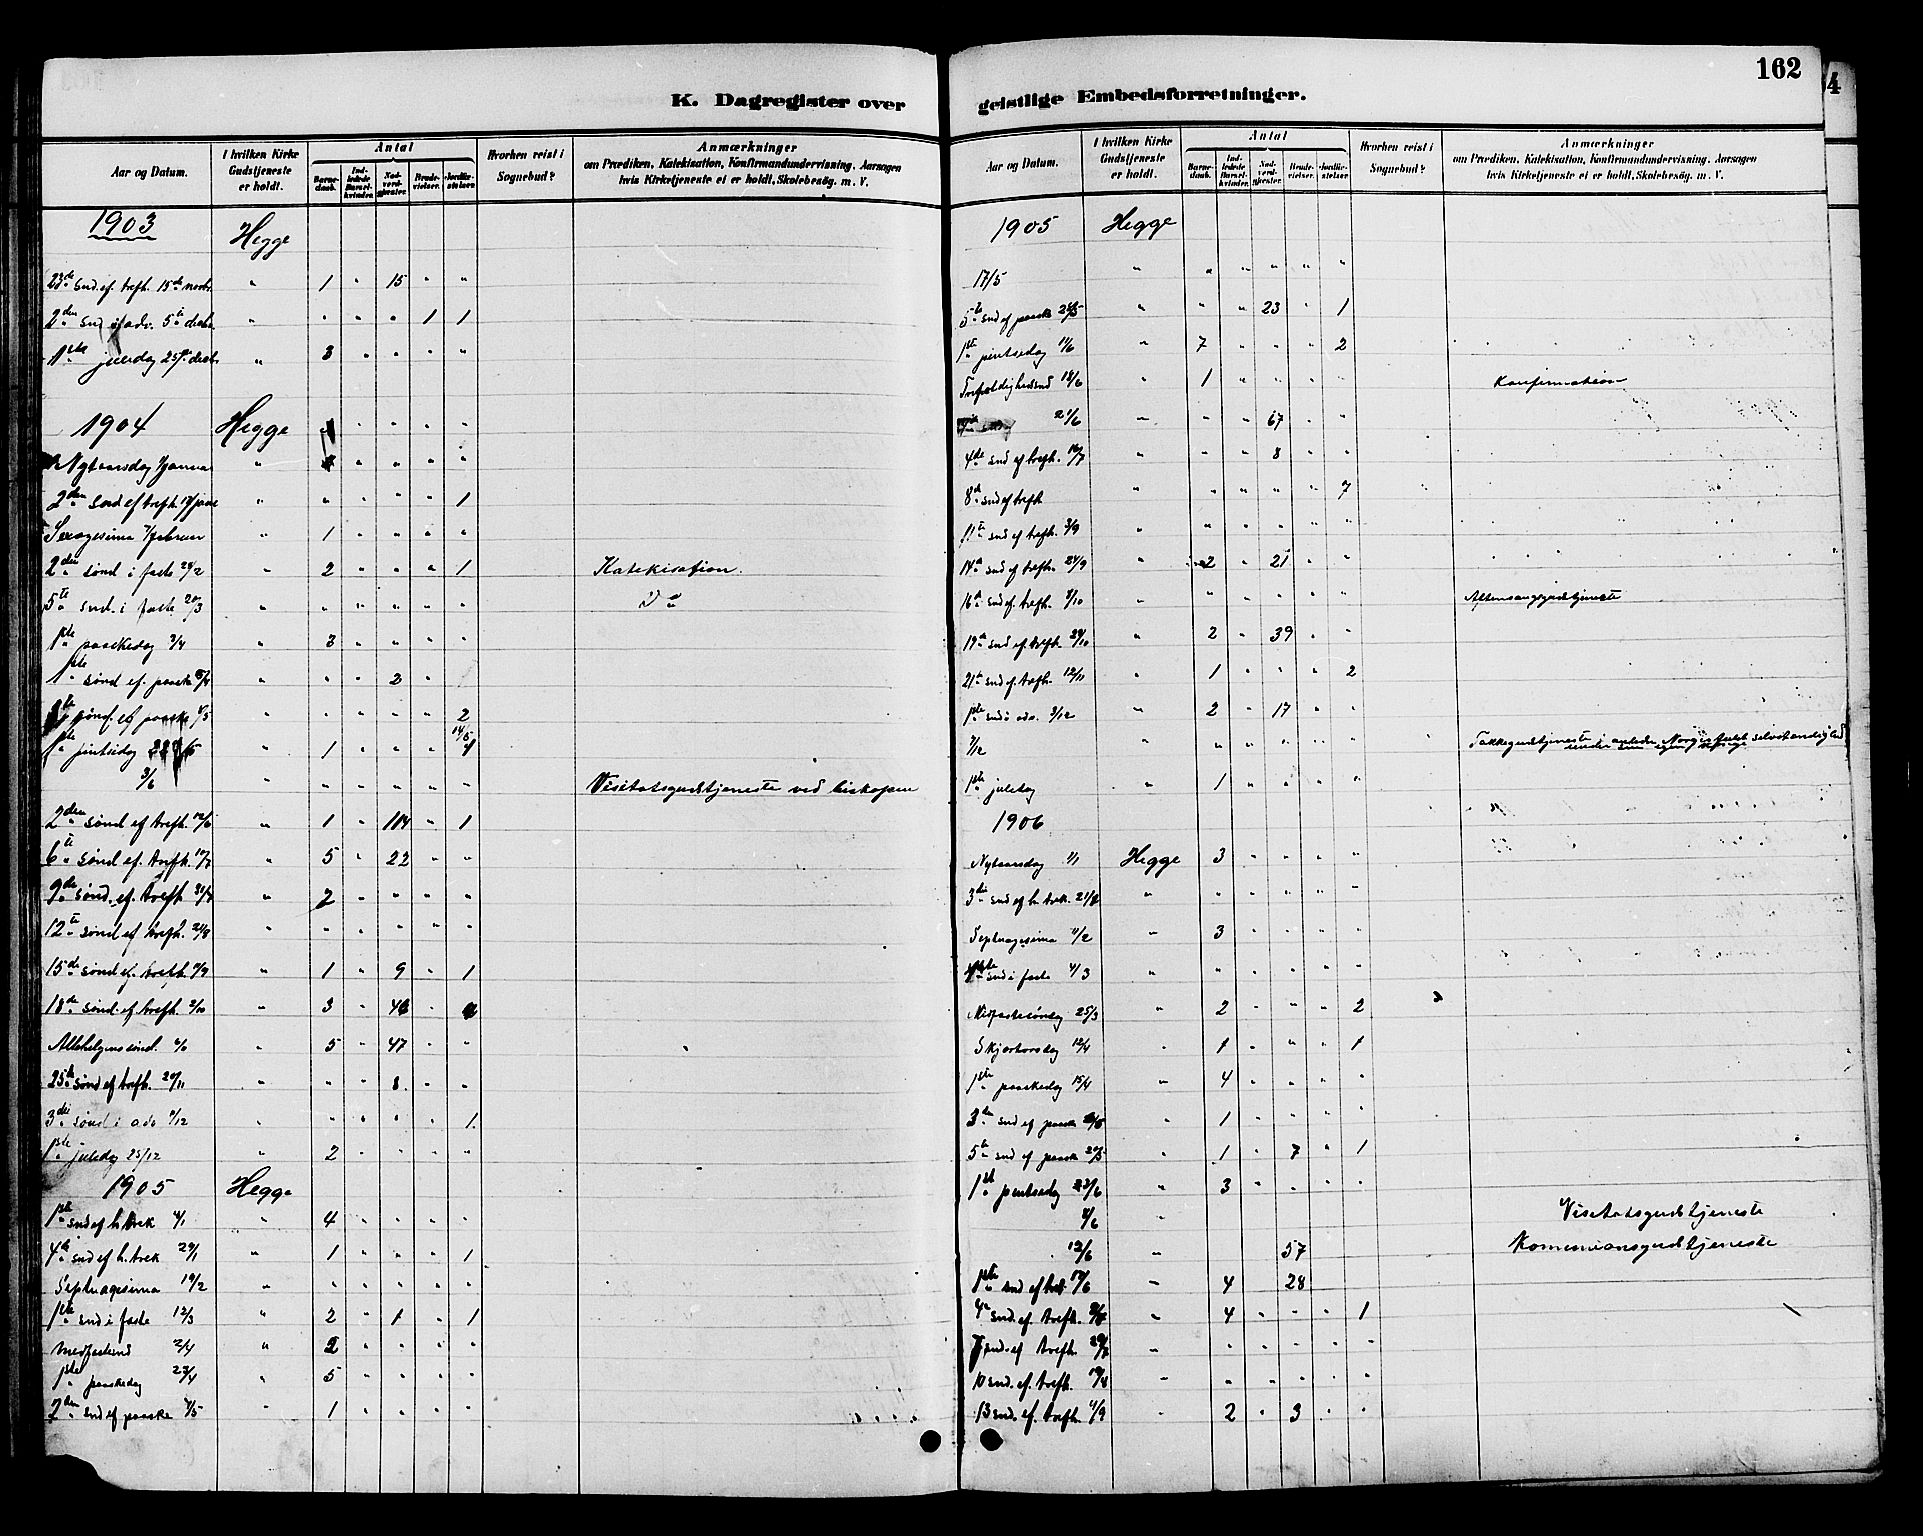 162
4
K. Dagregister over
Aar og Datum.
I hvilken Kirke Gudstjeneste er holdt.
Antal
Barnedaab. Indledede Barselkvinder. Nadverdgjester. Brudevielser. Jordfæstelser.
Hvorhen reist i Sognebud?
Anmærkninger
om Prædiken, Katekisation, Konfirmandundervisning, Aarsagen
hvis Kirketjeneste ei er holdt, Skolebesög. m. V.
1903 Hegge
23de snd. ef. trefh. 15de novbr. " 1 " 15 " "
2den snd i adv. 5te decbr. " " " " 1 1
1ste juledag 25/ decbr. " 3 " " " "
1904 Hegge
Nytaarsdag 1/januar " " " " "
2den snd ef trefh. 17/janr " " " " " 1
Sexagesima 7/februar " 1 " " " "
2den sønd i faste 28/2 " 2 " " " 1 Katekisation.
5te snd. i faste 20/3 " " " " " " Do
1ste paaskedag 3/4 " 3 " " " "
1ste sønd ef. paaske " " " 2 "
sønd. ef paaske /5 " " " " " 2
14/5
1ste pintsedag 22/5 " 1 " " "
3/6 " " " " " " Visitatsgudstjeneste ved biskopen
2den sønd ef trefh. 12/6 " 1 " 114 " 1
6te sønd ef. trefh. 10/7 " 5 " 22 " "
9de sønd. ef. trefh 31/7 " 2 " " " "
12te sønd ef trefh. 21/8 " " " " " "
15de sønd ef. trefh. 11/9 " 1 " 9 " 1
18de sønd. ef trefh. 2/10 " 3 "
Allehelgenssønd. 6/ " 5 " 47 " "
25te sønd ef trefh. 20/11 " " " 8 " "
3die sønd i adv 11/12 " " " " " 1
1ste juledag 25/12 " 2 " " " "
1905 Hegge
1ste snd ef h. trek /1 " 4 " " " "
4de snd ef h. trek 29/1 " 1 " " " 1
Septuagesima 19/2 " " " " " "
1ste snd i faste 12/3 " 2 " 1 " 1
Midfastesnd 2/4 " 2 " " " "
1ste paaskedag 23/4 " 5 " " " "
2den snd ef paaske /5 " 1 " " " "
geistlige Embedsforretninger.
Aar og Datum.
I hvilken Kirke Gudstjeneste er holdt.
Antal
Barnedaab. Indledede Barselkvinder. Nadverdgjester. Brudevielser. Jordfæstelser.
Hvorhen reist i Sognebud?
Anmærkninger
om Prædiken, Katekisation, Konfirmandundervisning, Aarsagen
hvis Kirketjeneste ei er holdt, Skolebesög. m. V.
1905 Hegge
17/5 " " " " " "
5te snd ef paaske 28/5 " " " 23 " 1
1ste pintsedag 11/6 " 7 " " " 2
Trefoldighedssnd 18/6 " 1 " " " " Konfirmation
21/6 " " " 67 " "
4de snd ef trefh. 16/7 " " " 8 " "
8de snd ef trefh " " " " " 7
11te snd ef trefh. 3/9 " " " " " "
14de snd ef trefh. 24/9 " 2 " 21 " "
16de snd ef. trefh. 8/10 " " " " " " Aftensangsgudstjeneste
19de snd ef. trefh. 29/10 " 2 " 39 " "
21de snd ef. trefh. 12/11 " 1 " " " 2
1ste snd i adv. 3/12 " 2 " 17 " "
7/12 " " " " " Takkegudstjeneste i anledn. Norges fulde selvstændighed
under sin egen konge
1ste juledag " 1 " " " "
1906
Nytaarsdag 1/1 Hegge 3 " " " "
3die snd ef h. trek. 21/1 " " " " " "
Septuagesima 11/2 " 3 " " " "
snd i faste 4/3 " " " " " "
Midfastesøndag 25/3 " 2 " " " 2
Skjærtorsdag 12/4 " 1 " " " 1
1ste paaskedag 15/4 " 4 " " " "
3die snd ef paaske /5 " 1 " " " "
5te snd ef paaske 20/5 " 1 " 7 " 1
1ste pintsedag 3/6 " 3 " " " "
/6 " Visitatsgudstjeneste
12/6 " 57 Kommunionsgudstjeneste
1ste snd ef tref. 17/6 " 4 28
4de snd. ef. trefh. 8/7 " 4 " " " 1
7 snd. ef trefh. 29/7 " " " " " "
10 snd. ef. trefh. 19/8 " " " " " "
13 snd. ef. trefh. /9 " 2 " 3 " "